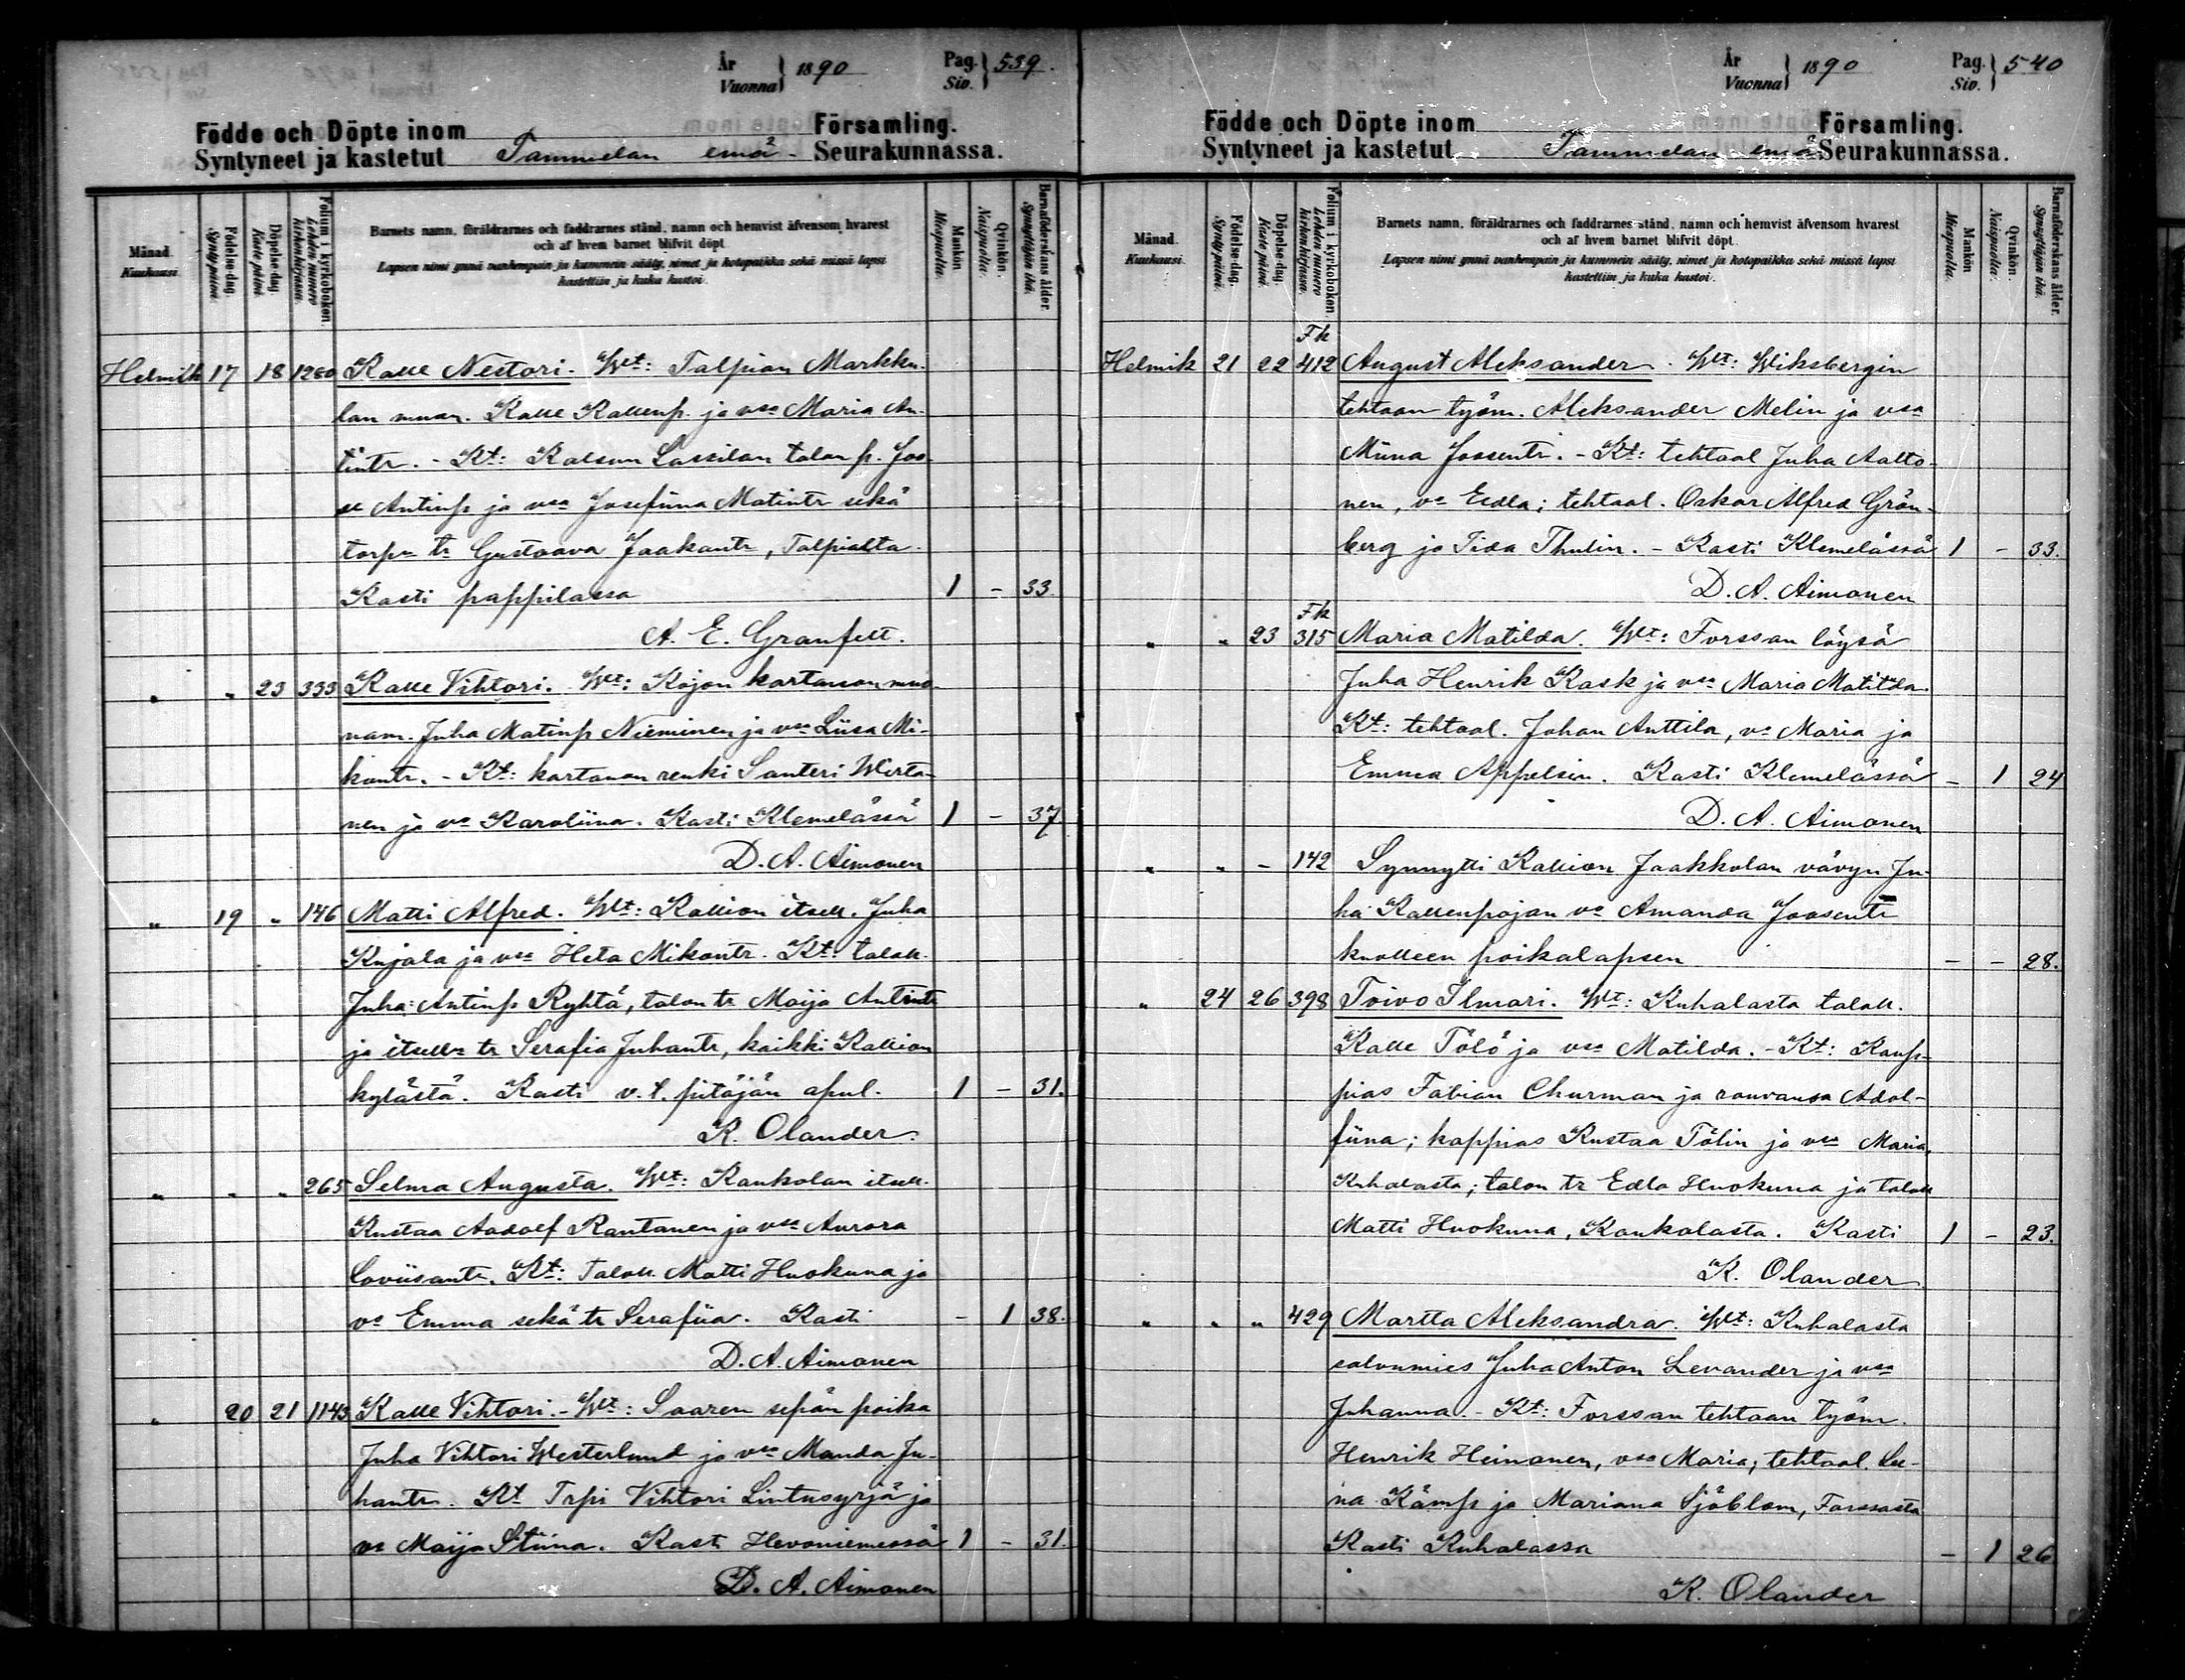 År Vuonna } 1890 Pag. Siv. } 539.
Födde och Döpte inom Församling.
Syntyneet ja kastetut Tammelan emä- Seurakunnassa.
Månad. Kuukausi.
Födelse-dag. Syntypäivä.
Döpelse-dag. Kaste päivä.
Folium i kyrkoboken. Lehden numero kirkonkirjassa.
Barnets namn, föräldrarnes och faddrarnes stånd, namn och hemvist äfvensom hvarest
och af hvem barnet blifvit döpt.
Lapsen nimi ynnä vanhempain ja kummein sääty, nimet ja kotopaikka sekä missä lapsi
kastettiin ja kuka kastoi.
Mankön Miespuolta.
Qvinkön. Naispuolta.
Barnaföderskans ålder. Synnyttäjän ikä.
Helmik 17 18 1280 Kalle Nestori. Wt: Talpian Markku-
lan muon. Kalle Kallenp. ja vsa Maria An-
tintr. - Kt: Kalsun Lassilan talon p. Joo-
se Antinp ja vsa Josefiina Matintr sekä
torp:n tr Gustaava Jaakontr, Talpialta.
Kasti pappilassa 1 - 33.
A. E. Granfelt.
" " 23 333 Kalle Vihtori. Wt: Kojon kartanon muo-
nam. Juha Matinp Nieminen ja vsa Liisa Mi-
kontr. - Kt: kartanon renki Santeri Wirta-
nen ja vo Karoliina. Kasti Klemelässä 1 - 37
D. A. Aimonen
" 19 " 146 Matti Alfred. Wt: Kallion itsell. Juha
Kujala ja vsa Heta Mikontr. Kt: talok.
Juha Antinp Ryhtä, talon tr Maija Antintr
ja itsell:n tr Serafia Juhantr, kaikki Kallion
kylästä. Kasti v. t. pitäjän apul. 1 - 31.
K. Olander.
" " " 265 Selma Augusta. Wt: Kaukolan itsell.
Kustaa Aadolf Rantanen ja vsa Aurora
Loviisantr. Kt: Talok. Matti Huokuna ja
vo Emma sekä tr Serafiia. Kasti - 1 38.
D. A. Aimonen
" 20 21 1143 Kalle Vihtori. - Wt: Saaren sepän poika
Juha Vihtori Westerlund ja vsa Manda Ju-
hantr. Kt Trpi Vihtori Lintusyrjä ja
vo Maija Stiina. Kasti Hevoniemessä 1 - 31.
D. A. Aimonen
År Vuonna } 1890 Pag. Siv. } 540
Födde och Döpte inom Församling.
Syntyneet ja kastetut Tammelan emä Seurakunnassa.
Månad. Kuukausi.
Födelse-dag. Syntypäivä.
Döpelse-dag. Kaste päivä.
Folium i kyrkoboken. Lehden numero kirkonkirjassa.
Barnets namn, föräldrarnes och faddrarnes stånd, namn och hemvist äfvensom hvarest
och af hvem barnet blifvit döpt.
Lapsen nimi ynnä vanhempain ja kummein sääty, nimet ja kotopaikka sekä missä lapsi
kastettiin ja kuka kastoi.
Mankön Miespuolta.
Qvinkön. Naispuolta.
Barnaföderskans ålder. Synnyttäjän ikä.
Fk
Helmik 21 22 412 August Aleksander. Wt: Wiksbergin
tehtaan työm. Aleksander Melin ja vsa
Miina Joosentr. - Kt: tehtaal Juha Aalto-
nen, vo Eedla; tehtaal. Oskar Alfred Grön-
berg ja Iida Thulin. - Kasti Klemelässä 1 - 33.
D. A. Aimonen
Fk
" " 23 315 Maria Matilda. Wt: Forssan löysä
Juha Henrik Kask ja vsa Maria Matilda.
Kt: tehtaal. Johan Anttila, vo Maria ja
Emma Appelsin. Kasti Klemelässä - 1 24
D. A. Aimonen
" " - 142 Synnytti Kallion Jaakkolan vävyn Ju-
ha Kallenpojan vo Amanda Joosentr
kuolleen poikalapsen - - 28.
" 24 26 398 Toivo Ilmari. Wt: Kuhalasta talok.
Kalle Tölö ja vsa Matilda. - Kt: Kaup-
pias Fabian Churman ja rouvansa Adol-
fiina; kappias Kustaa Tölin ja vsa Maria,
Kuhalasta; talon tr Edla Huokuna ja talok
Matti Huokuna, Kaukolasta. Kasti 1 - 23.
K. Olander
" " " 429 Martta Aleksandra. Wt: Kuhalasta
salvumies Juha Anton Levander ja vsa
Juhanna. - Kt: Forssan tehtaan työm.
Henrik Heinonen, vsa Maria; tehtaal. Lee-
na Kämp ja Mariana Sjöblom, Forssasta
Kasti Kuhalassa - 1 26
K. Olander